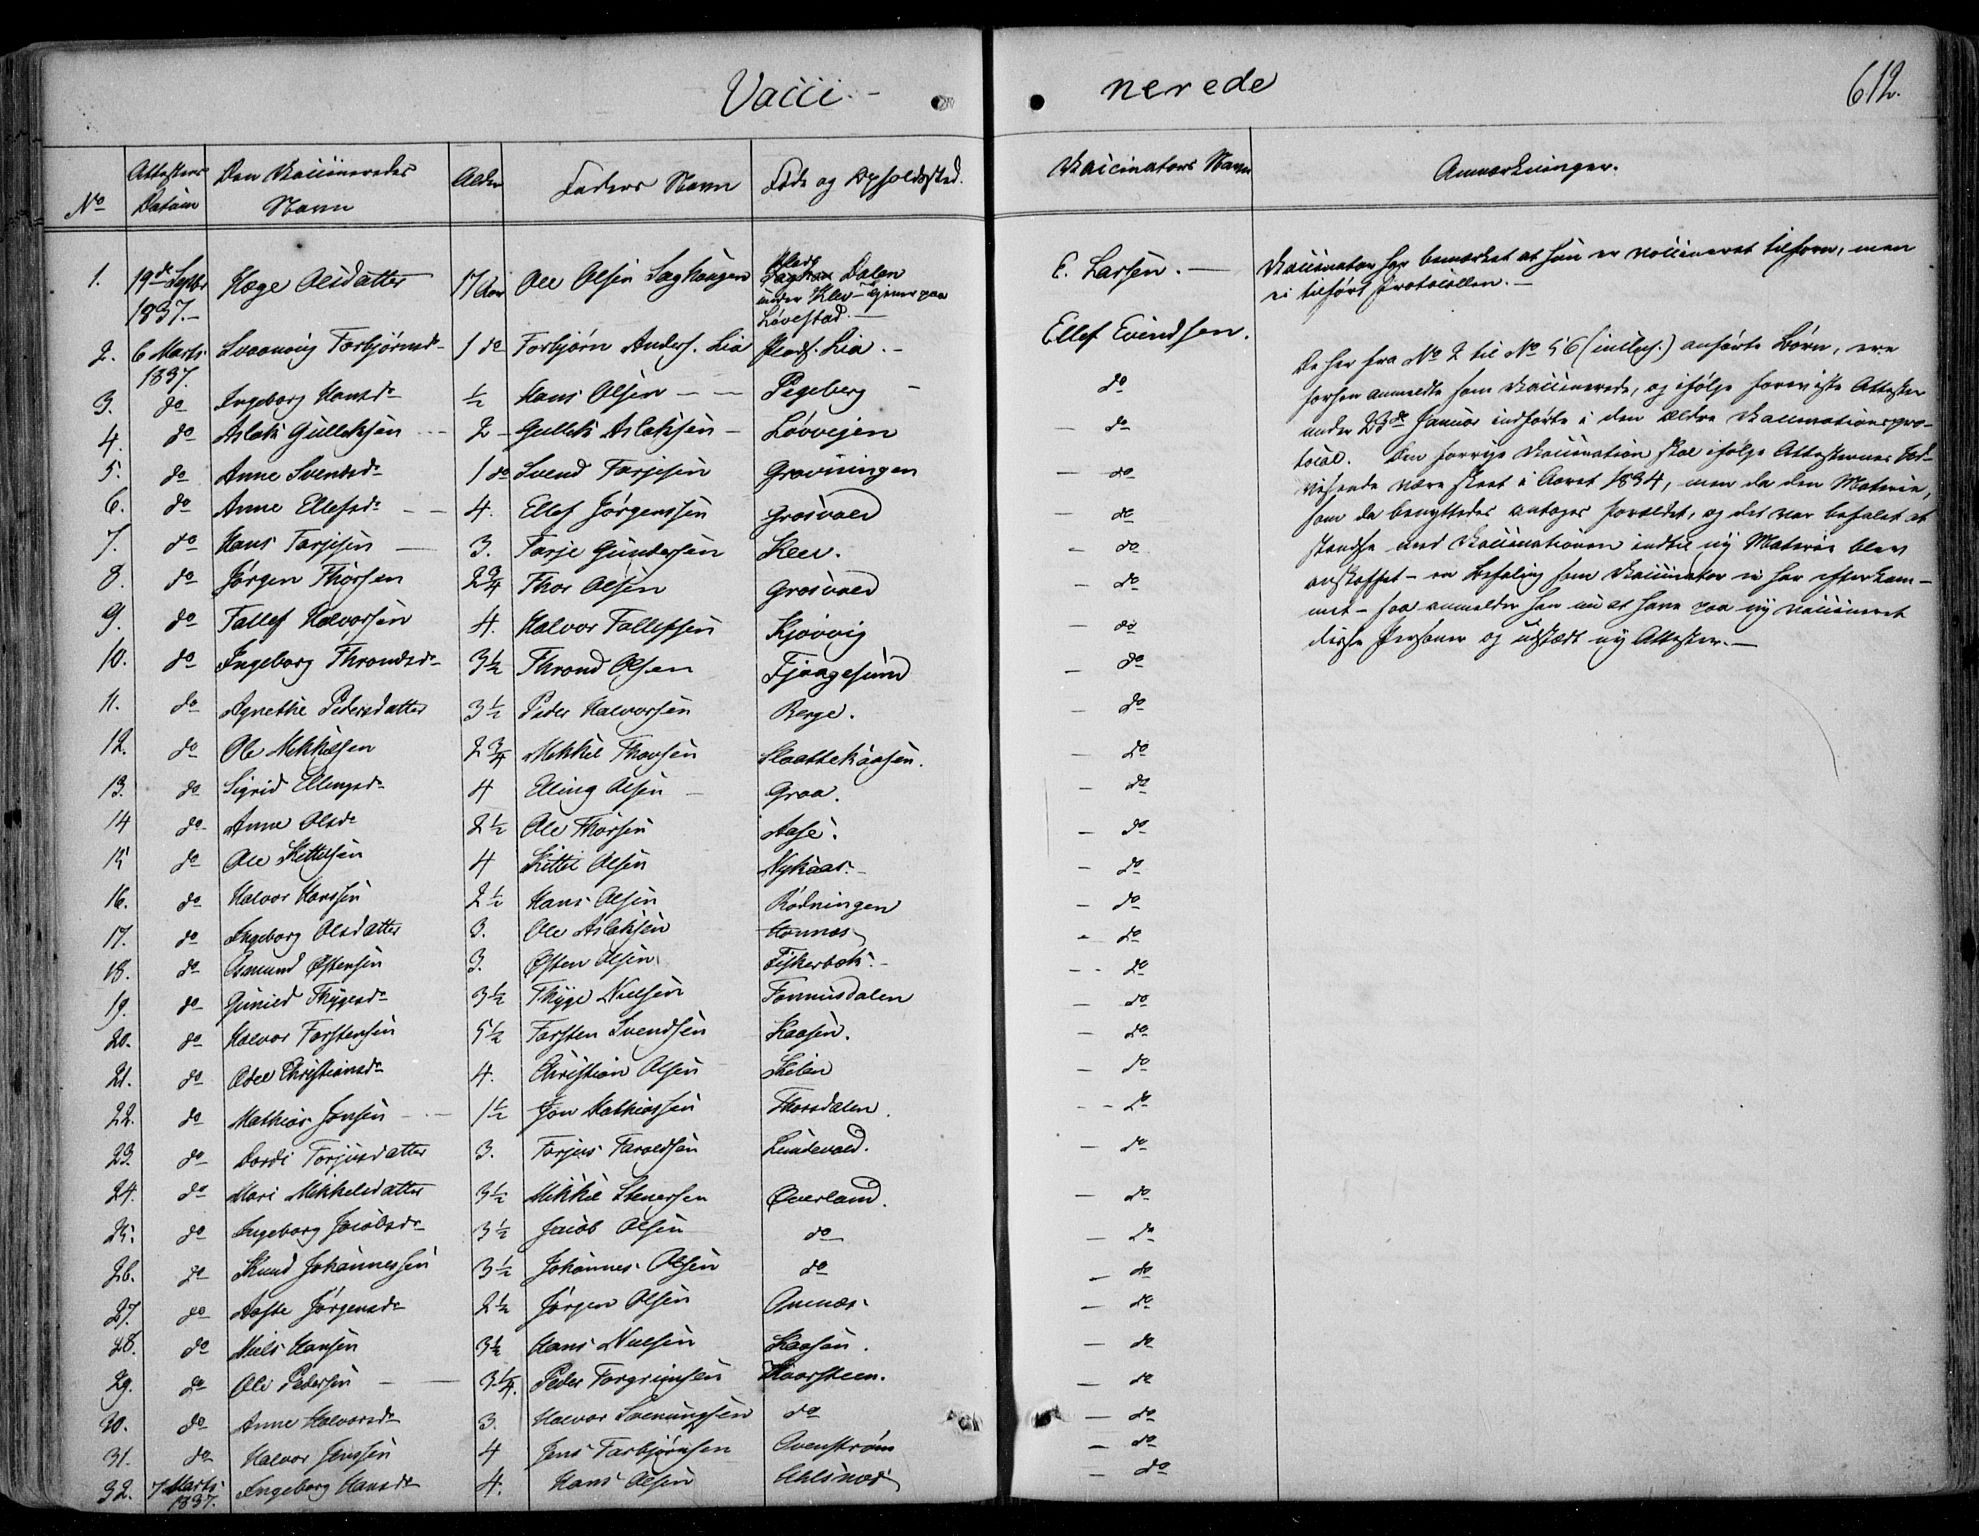 Vacci- nerede 612.
No Attestens Datum Den Vaccineredes Navn Alder Faders Navn Føde og Opholdssted. Vaccinators Navn Anmærkninger.
1. 19de Septbr 1837.- Hæge Olsdatter 17 Aar Ole Olsen Saghaugen Dalen under Klev - tjener paa Løvestad. — E. Larsen. — Vaccinator har bemærket at hun er vaccineret tilforn, men
ei tilført Protocollen. —
2. 6 Marts 1837. Svaanaug Torbjørnsd- 1 do Torbjørn Anders. Lia Pladf. Lia. - Ellef Evindsen.
3. do Ingeborg Hansd- ½ Hans Olsen - - Pegeberg - do
4. do Aslak Gulleksen - 2 - Gullek Aslaksen - Løvvejen - do
5. do Anne Svendsd- 1 do Svend Tarjesen Grovningen - do
6. do Anne Ellefsd- - - 4. Ellef Jørgenssen Grosvold - do
7. do Hans Tarjesen - 3. Tarje Gundersen Klev. - do
8. do Jørgen Thorsen 2¾ Thor Olsen Grosvold - do
9. do Tallef Halvorsen 4. Halvor Tallefsen Kjovvig - do
10. do Ingeborg Throndsd- 3½ Thrond Olsen Fjaagesund - do
11. do Agnethe Pedersdatter 3½ Peder Halvorsen Berge. - do
12. do Ole Mikkelsen 2¾ Mikkel Thorsen Slaattekaasen. - do
13. do Sigrid Ellingsd- 4 Elling Olsen - Graa. - do
14 do Anne Olsd- 2½ Ole Thorsen Aase. - do
15 do Ole Kettelsen 4 Kittil Olsen Nykaas. - - do
16. do Halvor Hanssen 2½ Hans Olsen Rødningen - do
17. do Ingeborg Olsdatter 3. Ole Aslaksen Honnæs - do
18. do Asmund Østensen 3. Østen Olsen Fiskerbæk. - - - do
19. do Gunild Thygesd- 3½ Thyge Nielsen Tonnusdalen - do
20. do Halvor Torstensen 5½ Torsten Svendsen Kaasen. - do
21. do Odel Christiansd- 4. Christian Olsen Skeien - do
22. do Mathias Jonsen - - 1½ Jon Mathiassen Thorsdalen. - - do
23. do Dordi Torjusdatter 3. Torjus Taroldsen Lundevald. - do
24. do Mari Mikkelsdatter 3½ Mikkil Stenersen Øverland. - do
25. do Ingeborg Jacobsd- 3½ Jacob Olsen do - do
26. do Knud Johannessen 3½ Johannes Olsen do - do
27. do Aaste Jørgensd- 2½ Jørgen Olsen Omnæs - do
28. do Niels Hansen 3½ Hans Nielsen Kaasen. - do
29. do Ole Pedersen - - 3¼. Peder Torgrimsen Haarsteen. - do
30. do Anne Halvorsd- 3. Halvor Svenungsen do - do
31. do Halvor Jenssen 4 Jens Tarbjørnsen Ovenstrøm - do
32. 7 Marts 1837. Ingeborg Hansd- 4. Hans Olsen Uhlsnæs - do
De her fra No 2 til No 56 (inclus.) anførte Børn, ere
forhen anmeldte som Vaccinerede, og ifølge foreviste Attester
under 23de Januar indførte i den ældre Vaccinationspro-
tocol. Den forrige Vaccination skal ifølge Attesternes Ud-
visende være skeet i Aaret 1834, men da den Materie,
som da benyttedes antages forældet, og det var befalet at
standse med Vaccinationen indtil ny Materie blev
anskaffet - en Befaling som Vaccinator ei har efterkom-
met - saa anmelder han nu at have paa ny vaccineret
disse Personer og udstædt ny Attester. —